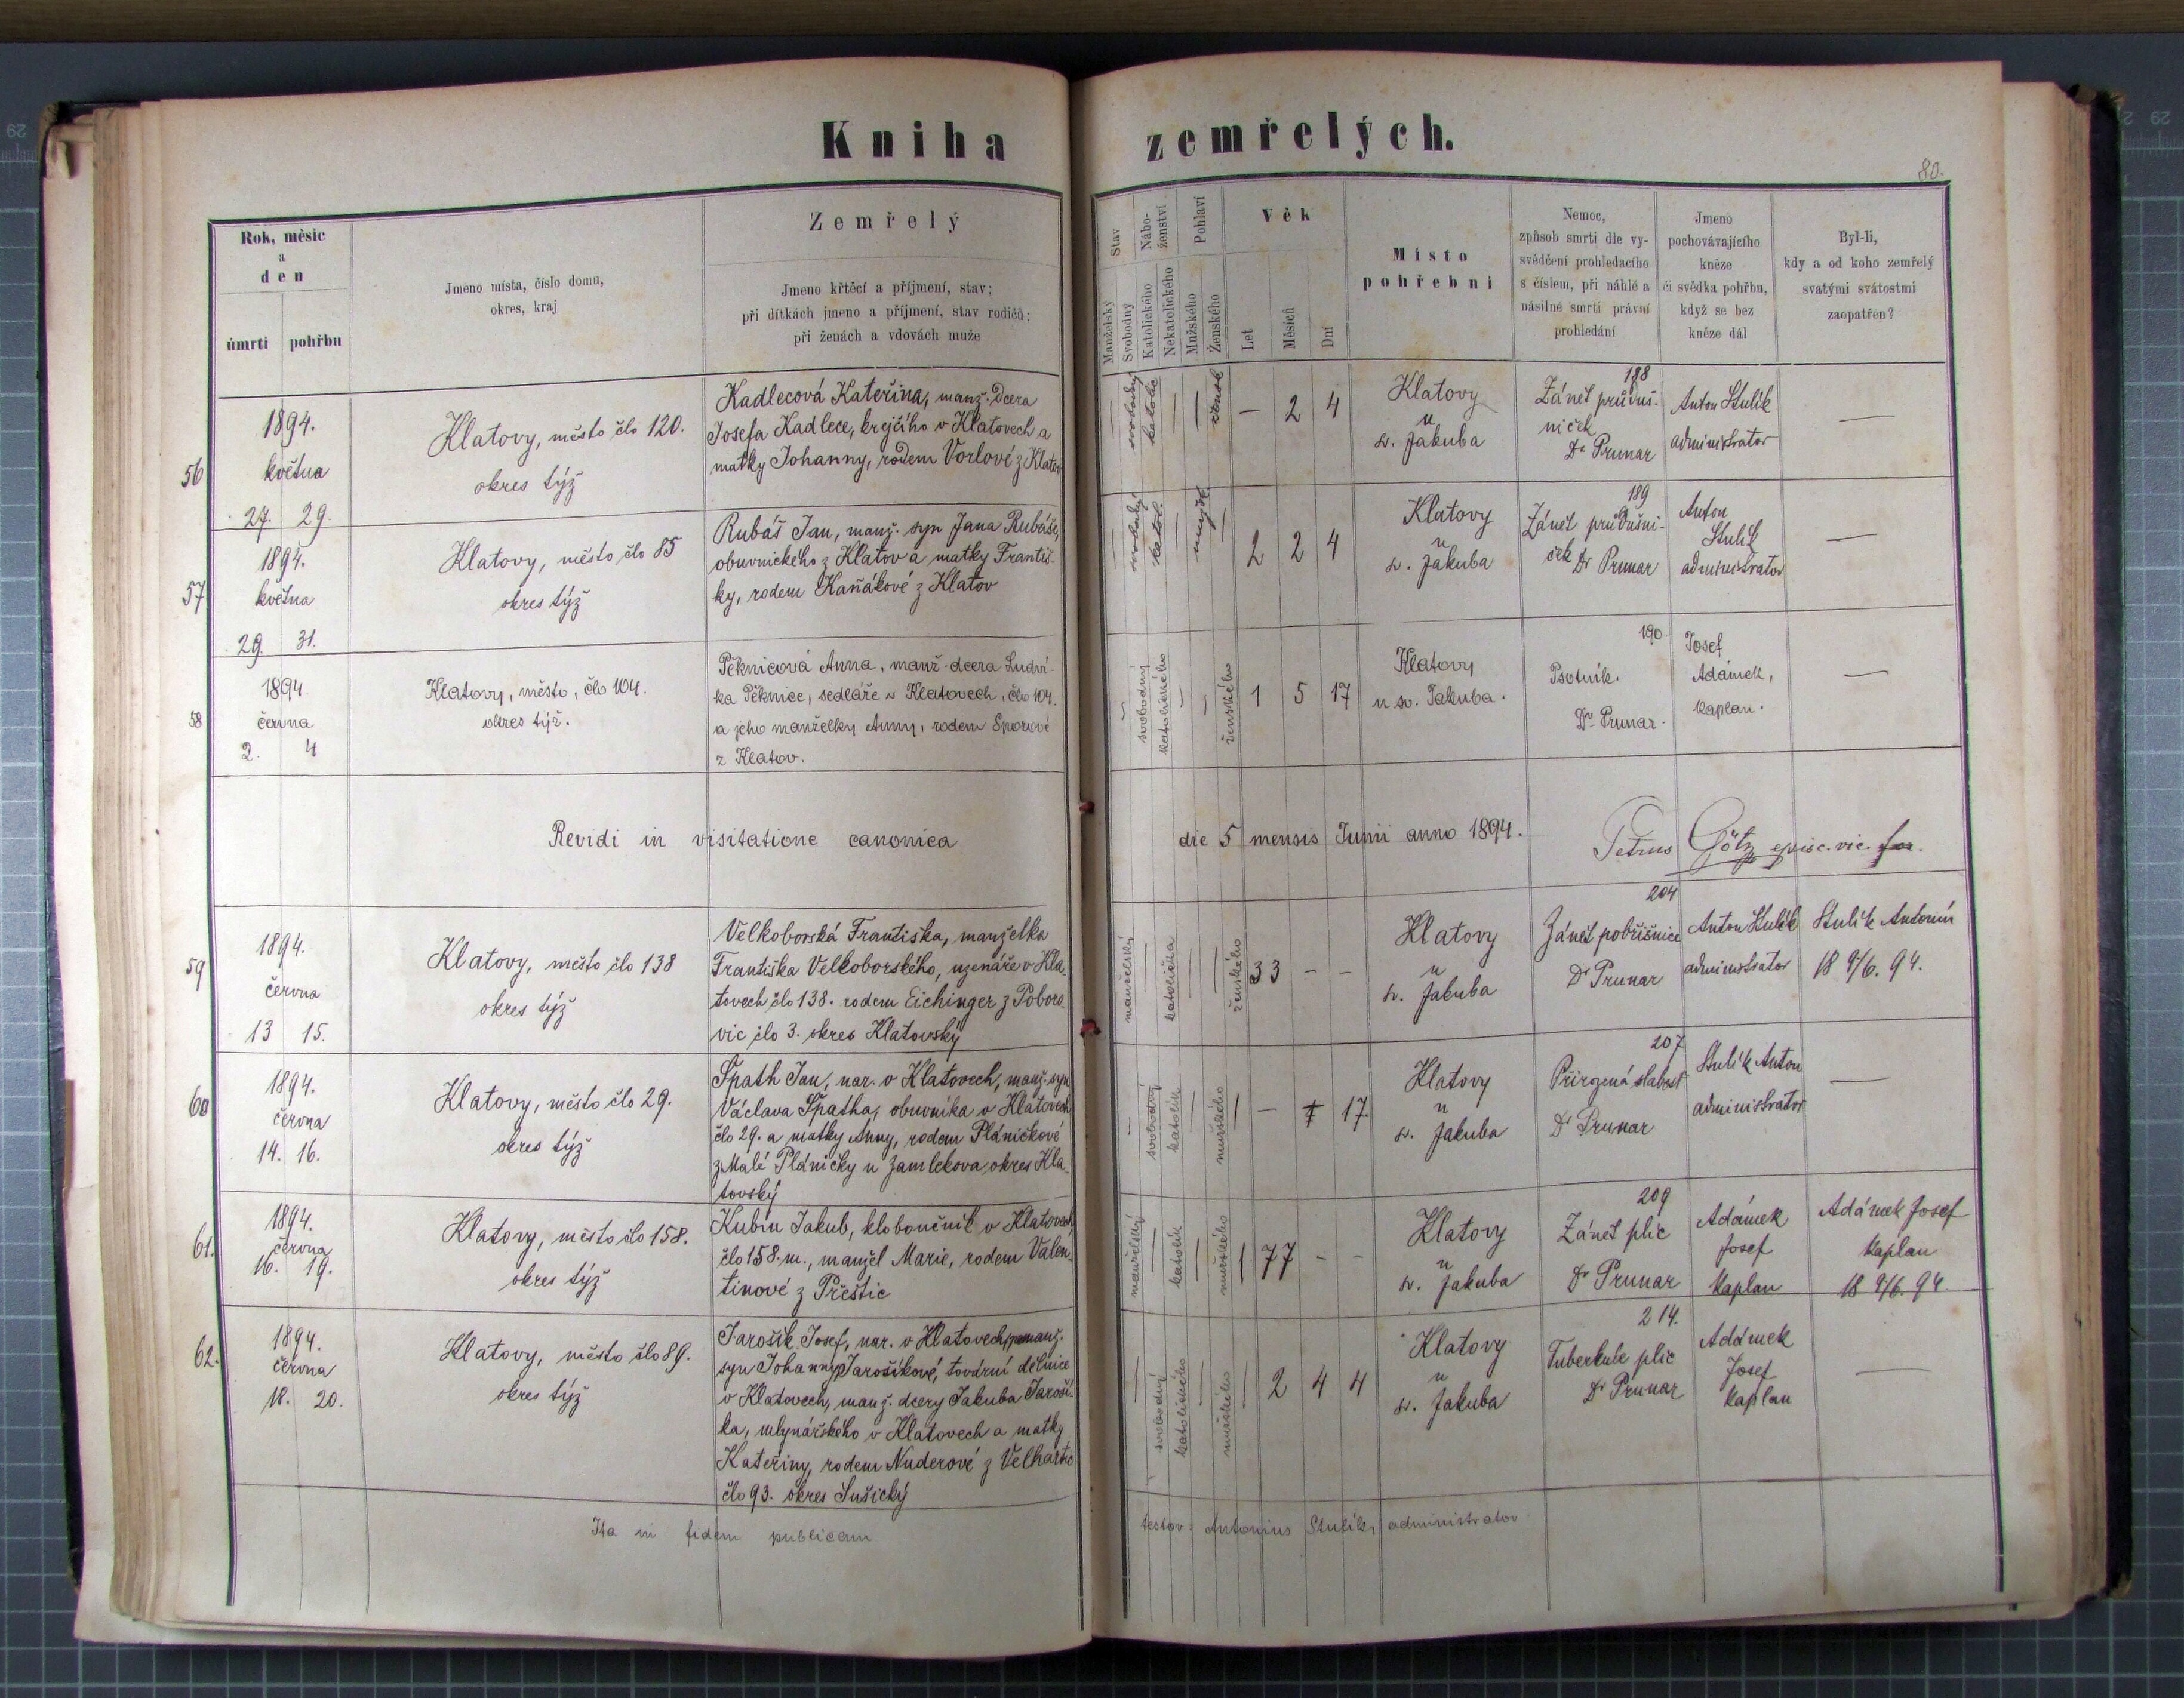 Kniha zemřelých.
80.
Rok, měsíc
a
den
úmrtí pohřbu
Jmeno místa, číslo domu,
okres, kraj
Zemřelý
Jmeno křtěcí a příjmení, stav;
při dítkách jmeno a příjmení, stav rodičů;
při ženách a vdovách muže
Stav
Manželský
Svobodný
Nábo-
ženství
Katolického
Nekatolického
Pohlaví
Mužského
Ženského
Věk
Let
Měsíců
Dní
Místo
pohřební
Nemoc,
způsob smrti dle vy-
svědčení prohledacího
s číslem, při náhlé a
násilné smrti právní
prohledání
Jmeno
pochovávajícího
kněze
či svědka pohřbu,
když se bez
kněze dál
Byl-li,
kdy a od koho zemřelý
svatými svátostmi
zaopatřen?
56
1894.
května
27. 29.
Klatovy, město člo 120.
okres týž
Kadlecová Kateřina, manž. dcera
Josefa Kadlece, krejčího v Klatovech a
matky Johanny, rodem Vorlové z Klatov
svobodný
katolic
žensk
— 2 4
Klatovy
u
sv. Jakuba
188
Zánět průduš-
niček
Dr Prunar
Anton Stulík
administrator
—
57
1894.
května
29. 31.
Klatovy, město člo 85
okres týž
Rubáš Jan, manž. syn Jana Rubáše,
obuvnického z Klatov a matky Františ-
ky, rodem Kaňákové z Klatov
svobodný
katol.
mužsk
2 2 4
Klatovy
u
sv. Jakuba
189
Zánět průdušni-
ček Dr Prunar
Anton
Stulík
administrator
—
58
1894
června
2. 4
Klatovy, město, člo 104.
okres týž.
Pěknicová Anna, manž. dcera Ludví-
ka Pěknice, sedláře v Klatovech, člo 104.
a jeho manželky Anny, rodem Šporové
z Klatov.
svobodný
katolického
ženského
1 5 17
Klatovy
u sv. Jakuba.
190.
Psotník.
Dr Prunar.
Josef
Adámek,
kaplan.
—
Revidi in visitatione canonica die 5 mensis Junii anno 1894.
Petrus Götz episc. vic. for.
59
1894.
června
13 15.
Klatovy, město člo 138
okres týž
Velkoborská Františka, manželka
Františka Velkoborského, uzenáře v Kla-
tovech člo 138. rodem Eichinger z Poboro-
vic člo 3. okres Klatovský
manželský
katolička
ženského
33 - -
Klatovy
u
sv. Jakuba
204
Zánět pobřišnice
Dr Prunar
Anton Stulík
administrator
Stulík Antonín
18 9/6. 94.
60
1894.
června
14. 16.
Klatovy, město člo 29.
okres týž
Špath Jan, nar. v Klatovech, manž. syn
Václava Špatha, obuvníka v Klatovech
člo 29. a matky Anny, rodem Pláničkové
z Malé Pláničky u Zamlekova, okres Kla-
tovský
svobodný
katolík
mužského
— 17.
Klatovy
u
sv. Jakuba
207
Přirozená slabost
Dr Prunar
Stulík Anton
administrator
—
61.
1894.
června
16. 19.
Klatovy, město čslo 158.
okres týž
Kubín Jakub, kloboučník v Klatovech
člo 158. m., manžel Marie, rodem Valen-
tinové z Přeštic
manželský
katolík
mužského
77 - -
Klatovy
u
sv. Jakuba
209
Zánět plic
Dr Prunar
Adámek
Josef
kaplan
Adámek Josef
kaplan
18 9/6. 94.
62.
1894.
června
18. 20.
Klatovy, město člo 89.
okres týž
Jarošík Josef, nar. v Klatovech, nemanž.
syn Johanny Jarošíkové, tovární dělnice
v Klatovech, manž. dcery Jakuba Jaroší-
ka, mlynářského v Klatovech a matky
Kateřiny, rodem Nuderové z Velhartic
člo 93. okres Sušický
svobodný
katolického
mužského
2 4 4
Klatovy
u
sv. Jakuba
214.
Tuberkule plic
Dr Prunar
Adámek
Josef
kaplan
—
Ita in fidem publicam testor: Antonius Stulík, administrator.